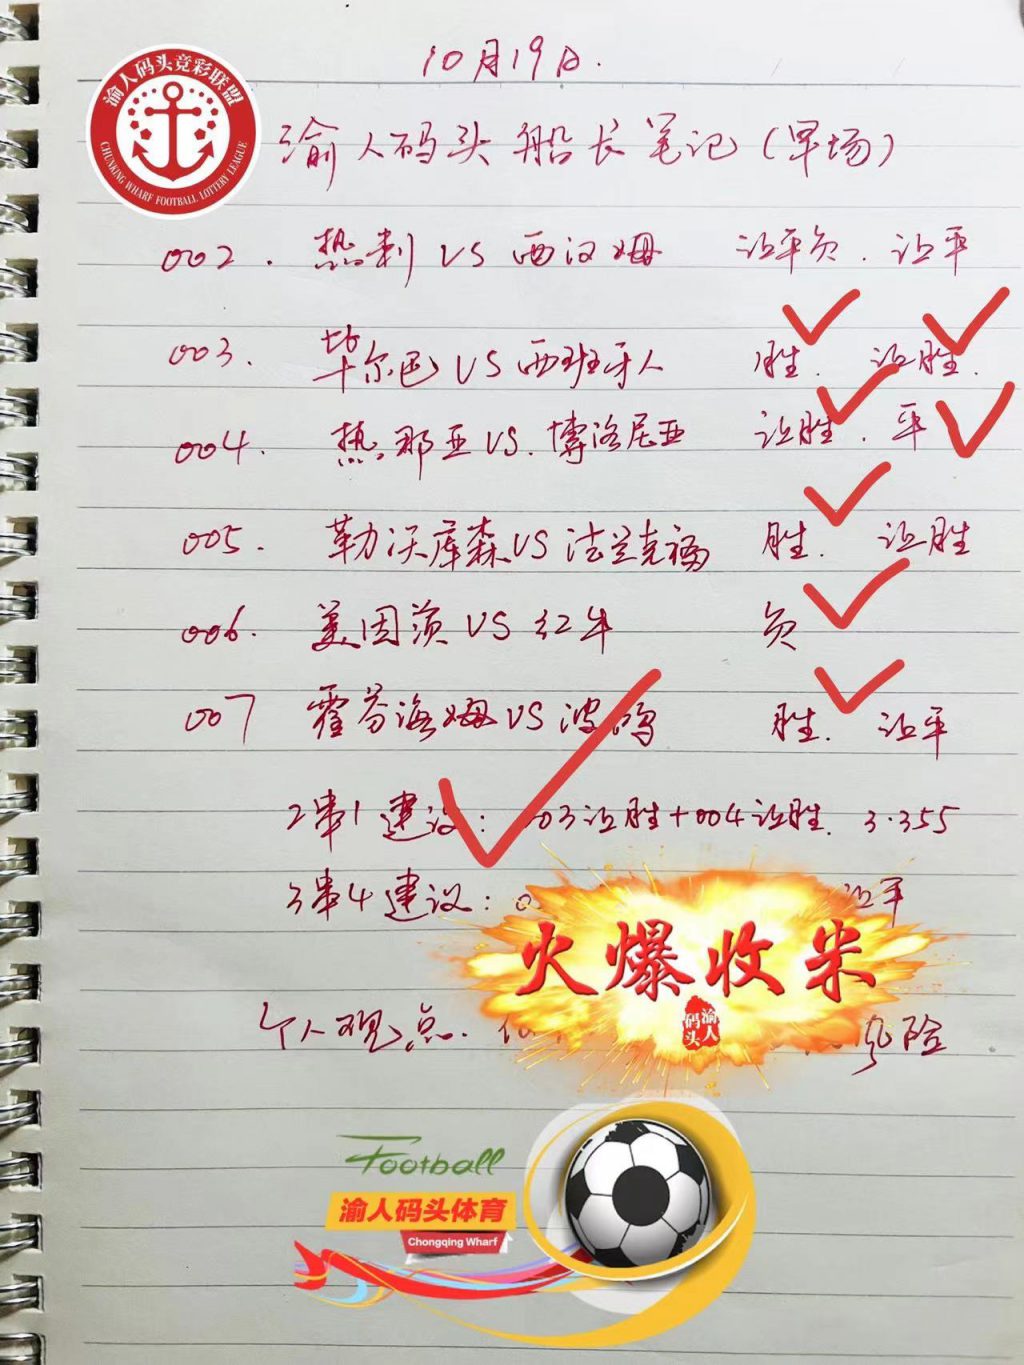 10月19日.
渝人码头竞彩联盟
CHUNKING WHARF FOOTBALL LOTTERY LEAGUE
渝人码头船长笔记(早场)
002. 热刺VS西汉姆 让平负. 让平
003. 毕尔巴VS西班牙人 胜. 让胜.
004. 热.那亚VS.博洛尼亚 让胜. 平
005. 勒沃库森VS法兰克福 胜. 让胜
006. 美因茨VS红牛 负
007 霍芬海姆VS波鸿 胜. 让平
2串1建议: 03让胜+004让胜. 3.355
3串4建议: 0 让平
火爆收米
渝人码头
个人观点. 风险
Football
渝人码头体育
Chongqing Wharf